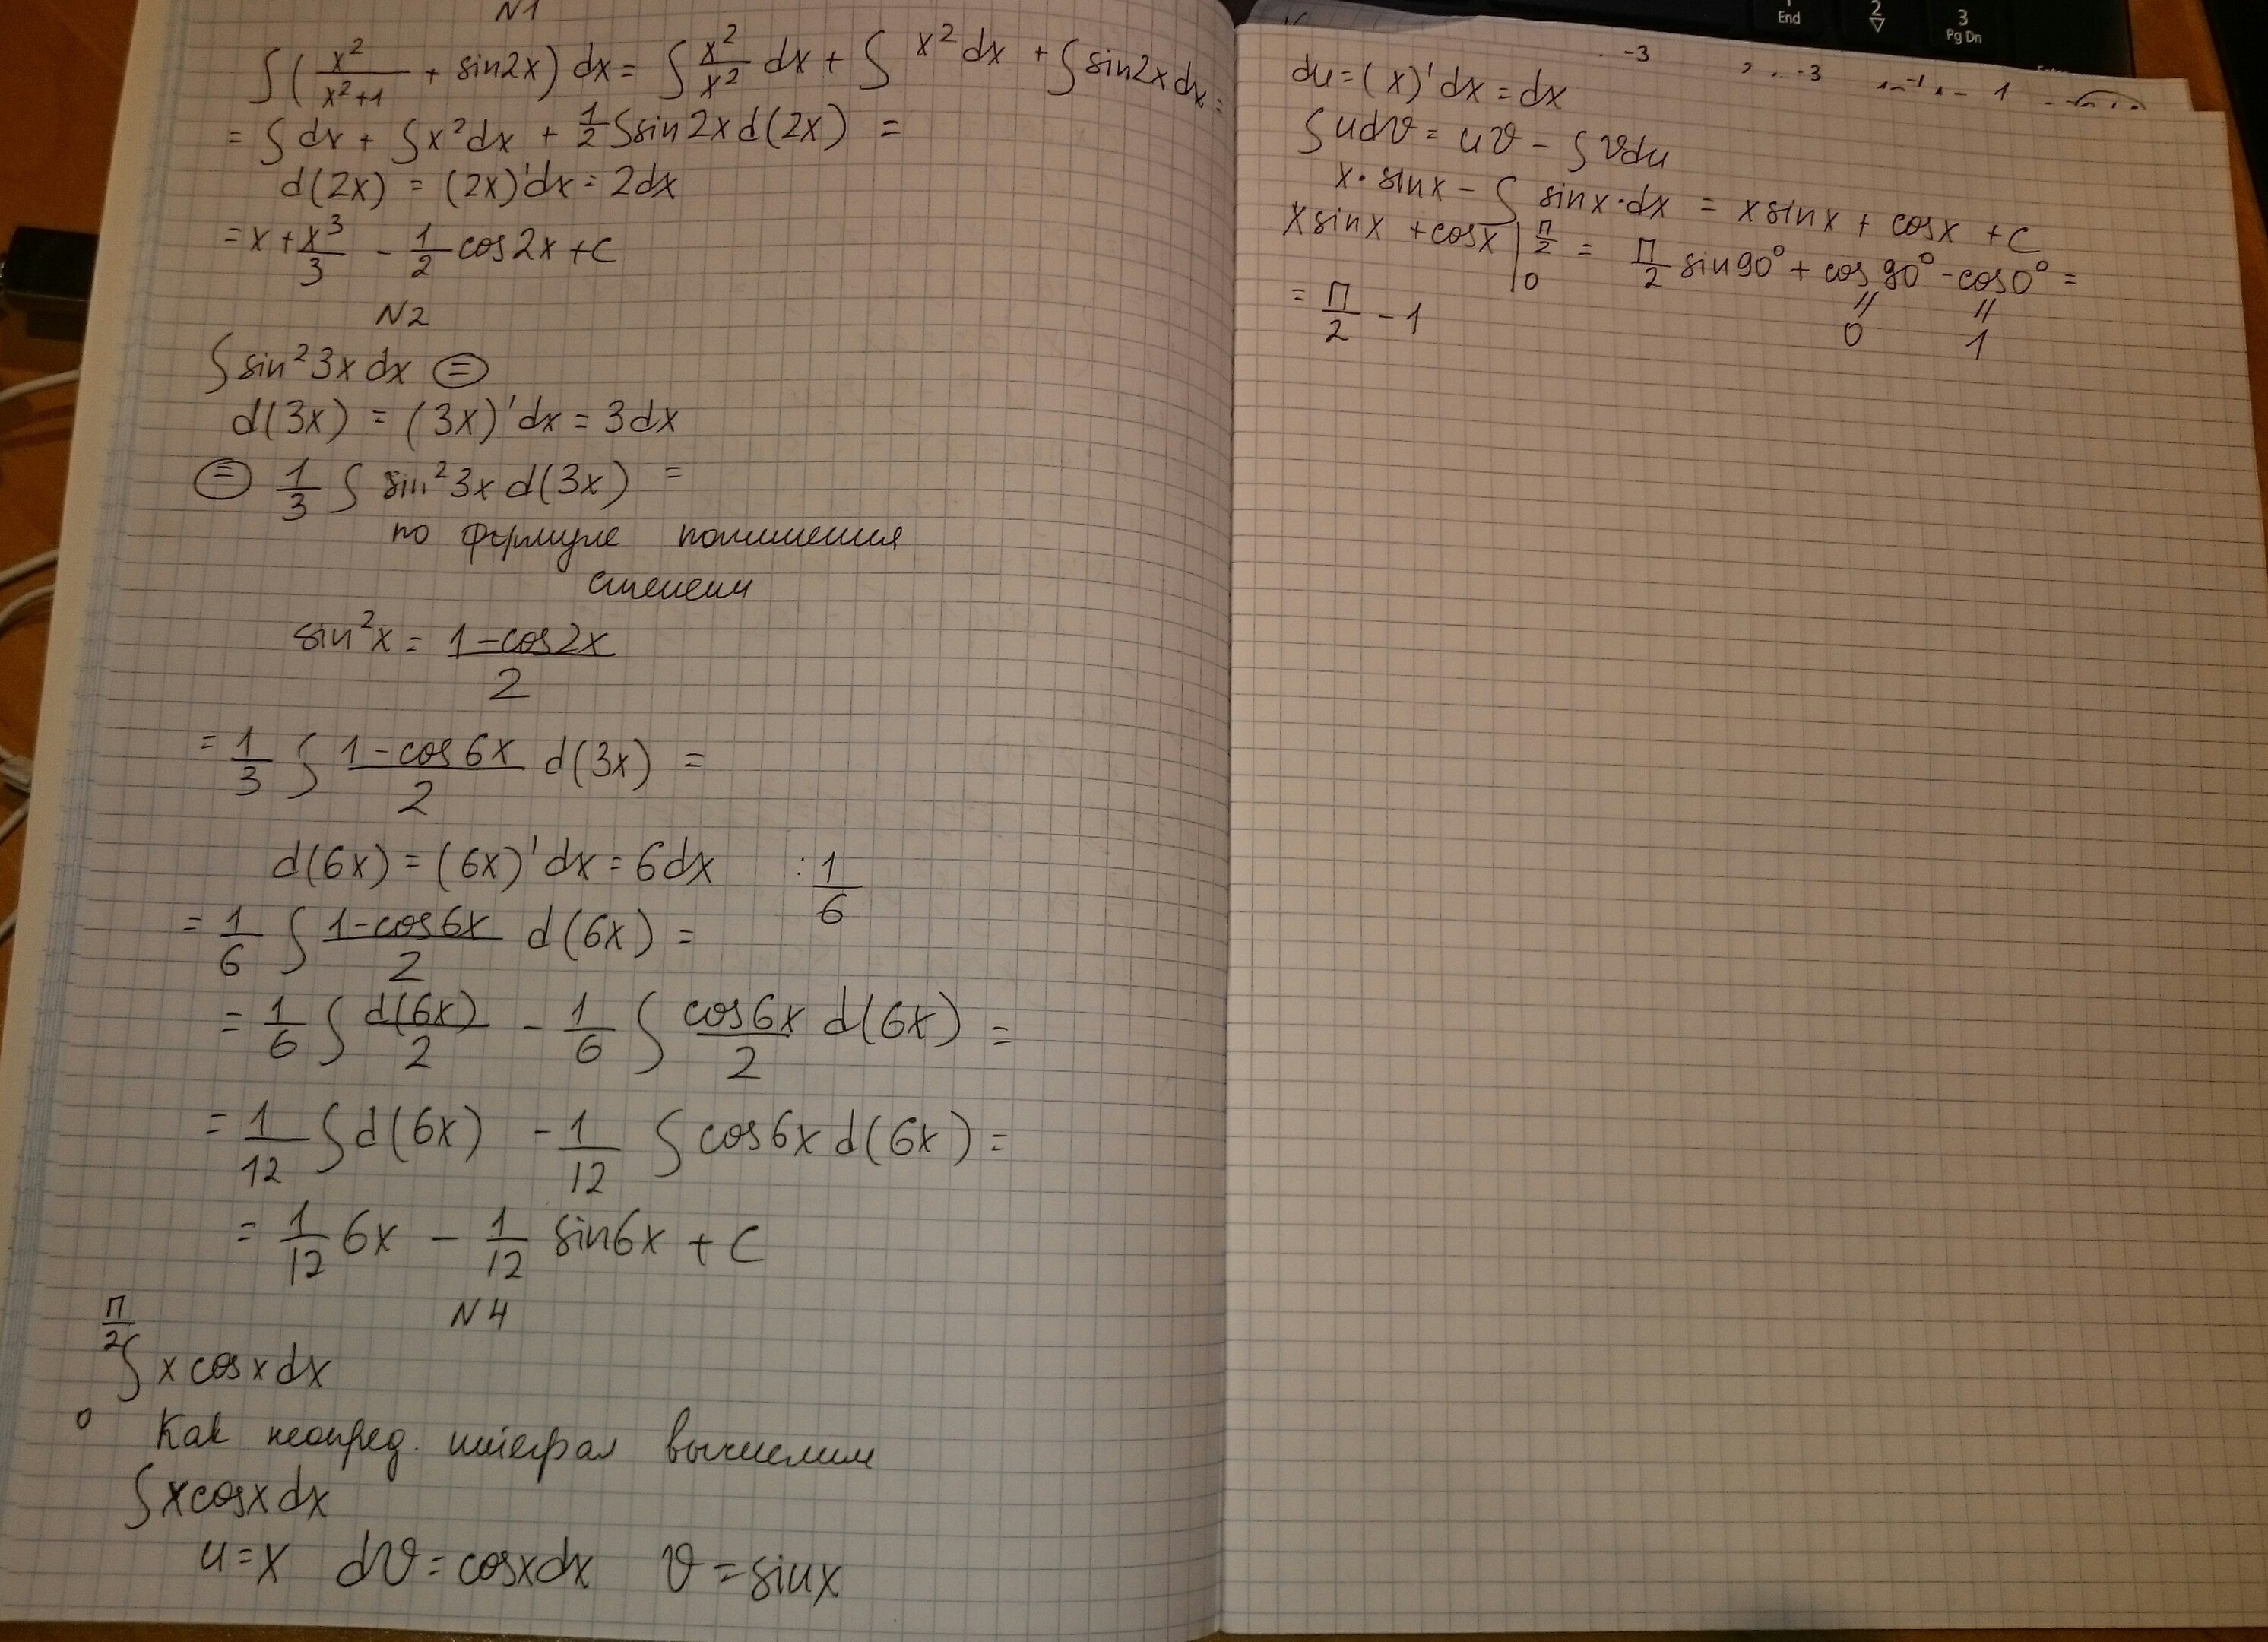 N1
∫(x²/(x²+1) + sin2x) dx = ∫ x²/x² dx + ∫ x² dx + ∫ sin2x dx =
= ∫ dx + ∫ x² dx + 1/2 ∫ sin 2x d(2x) =
d(2x) = (2x)'dx = 2dx
= x + x³/3 - 1/2 cos2x + c
N2
∫ sin² 3x dx ⊜
d(3x) = (3x)'dx = 3dx
⊜ 1/3 ∫ sin² 3x d(3x) =
по формуле понижения
степени
sin²x = (1-cos2x)/2
= 1/3 ∫ (1-cos6x)/2 d(3x) =
d(6x) = (6x)'dx = 6dx : 1/6
= 1/6 ∫ (1-cos6x)/2 d(6x) =
= 1/6 ∫ d(6x)/2 - 1/6 ∫ cos6x/2 d(6x) =
= 1/12 ∫ d(6x) - 1/12 ∫ cos6x d(6x) =
= 1/12 6x - 1/12 sin6x + c
N4
π/2
∫ x cosx dx
0
Как неопред. интеграл вычислим
∫ x cosx dx
u = x dv = cosxdx v = sinx
du = (x)'dx = dx
∫ udv = uv - ∫ vdu
x·sinx - ∫ sinx·dx = xsinx + cosx + c
xsinx + cosx |₀^(π/2) = π/2 sin90° + cos90° - cos0° =
0 1
= π/2 - 1
End
2
3
Pg Dn